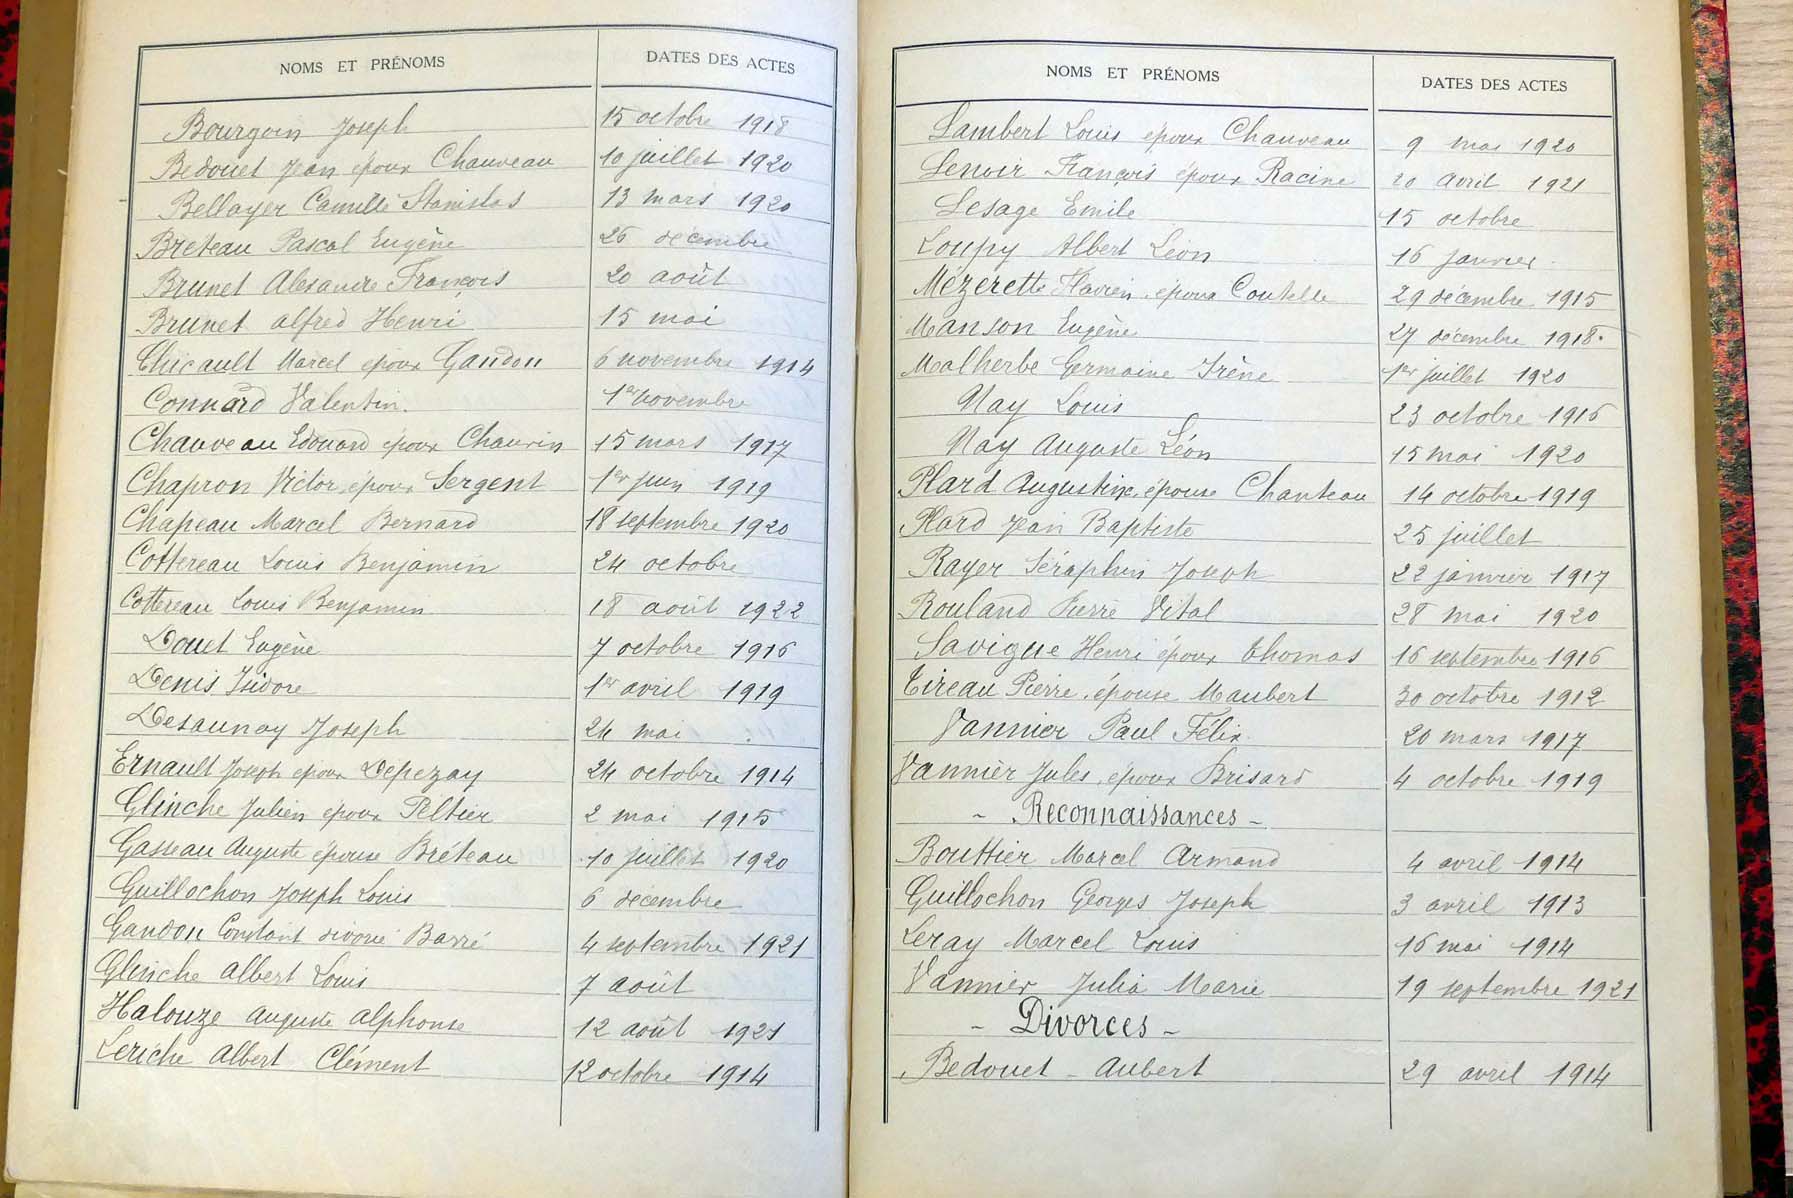 NOMS ET PRÉNOMS DATES DES ACTES
Bourgoin Joseph 15 octobre 1918
Bedouet Jean époux Chauveau 10 juillet 1920
Bellayer Camille Stanislas 13 mars 1920
Bréteau Pascal Eugène 26 décembre
Brunet Alexandre François 20 août
Brunet Alfred Henri 15 mai
Chicault Marcel époux Gandon 6 novembre 1914
Connard Valentin. 1er novembre
Chauveau Edouard époux Chauvin 15 mars 1917
Chapron Victor, époux Sergent 1er juin 1919
Chapeau Marcel Bernard 18 septembre 1920
Cottereau Louis Benjamin 24 octobre
Cottereau Louis Benjamin 18 août 1922
Douet Eugène 7 octobre 1916
Denis Isidore 1er avril 1919
Desaunay Joseph 24 mai
Ernault Joseph époux Depezay 24 octobre 1914
Glinche Julien époux Peltier 2 mai 1915
Gasteau Auguste épouse Bréteau 10 juillet 1920
Guillochon Joseph Louis 6 décembre
Gandon Constant divorcé Barré 4 septembre 1921
Glinche Albert Louis 7 août
Halouze Auguste Alphonse 12 août 1921
Leriche Albert Clément 12 octobre 1914
NOMS ET PRÉNOMS DATES DES ACTES
Lambert Louis époux Chauveau 9 mai 1920
Lenoir François époux Racine 20 avril 1921
Lesage Emile 15 octobre
Loupy Albert Léon 16 janvier
Mézerette Flavien, époux Coutelle 29 décembre 1915
Manson Eugène 27 décembre 1918.
Malherbe Germaine Irène 1er juillet 1920
Nay Louis 23 octobre 1916
Nay Auguste Léon 15 mai 1920
Plard Augustine, épouse Chanteau 14 octobre 1919
Plard Jean Baptiste 25 juillet
Rayer Séraphin Joseph 22 janvier 1917
Rouland Pierre Vital 28 mai 1920
Savigne Henri époux Thomas 16 septembre 1916
Tireau Pierre, épouse Maubert 30 octobre 1912
Vannier Paul Félix. 20 mars 1917
Vannier Jules, époux Brisard 4 octobre 1919
- Reconnaissances -
Bouttier Marcel Armand 4 avril 1914
Guillochon Georges Joseph 3 avril 1913
Leray Marcel Louis 16 mai 1914
Vannier Julia Marie 19 septembre 1921
- Divorces -
Bedouet - Aubert 29 avril 1914